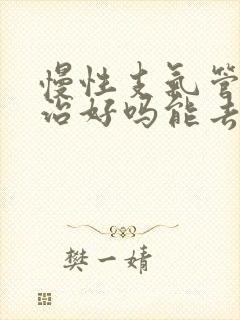 慢性支气管
治好吗能去
樊一婧